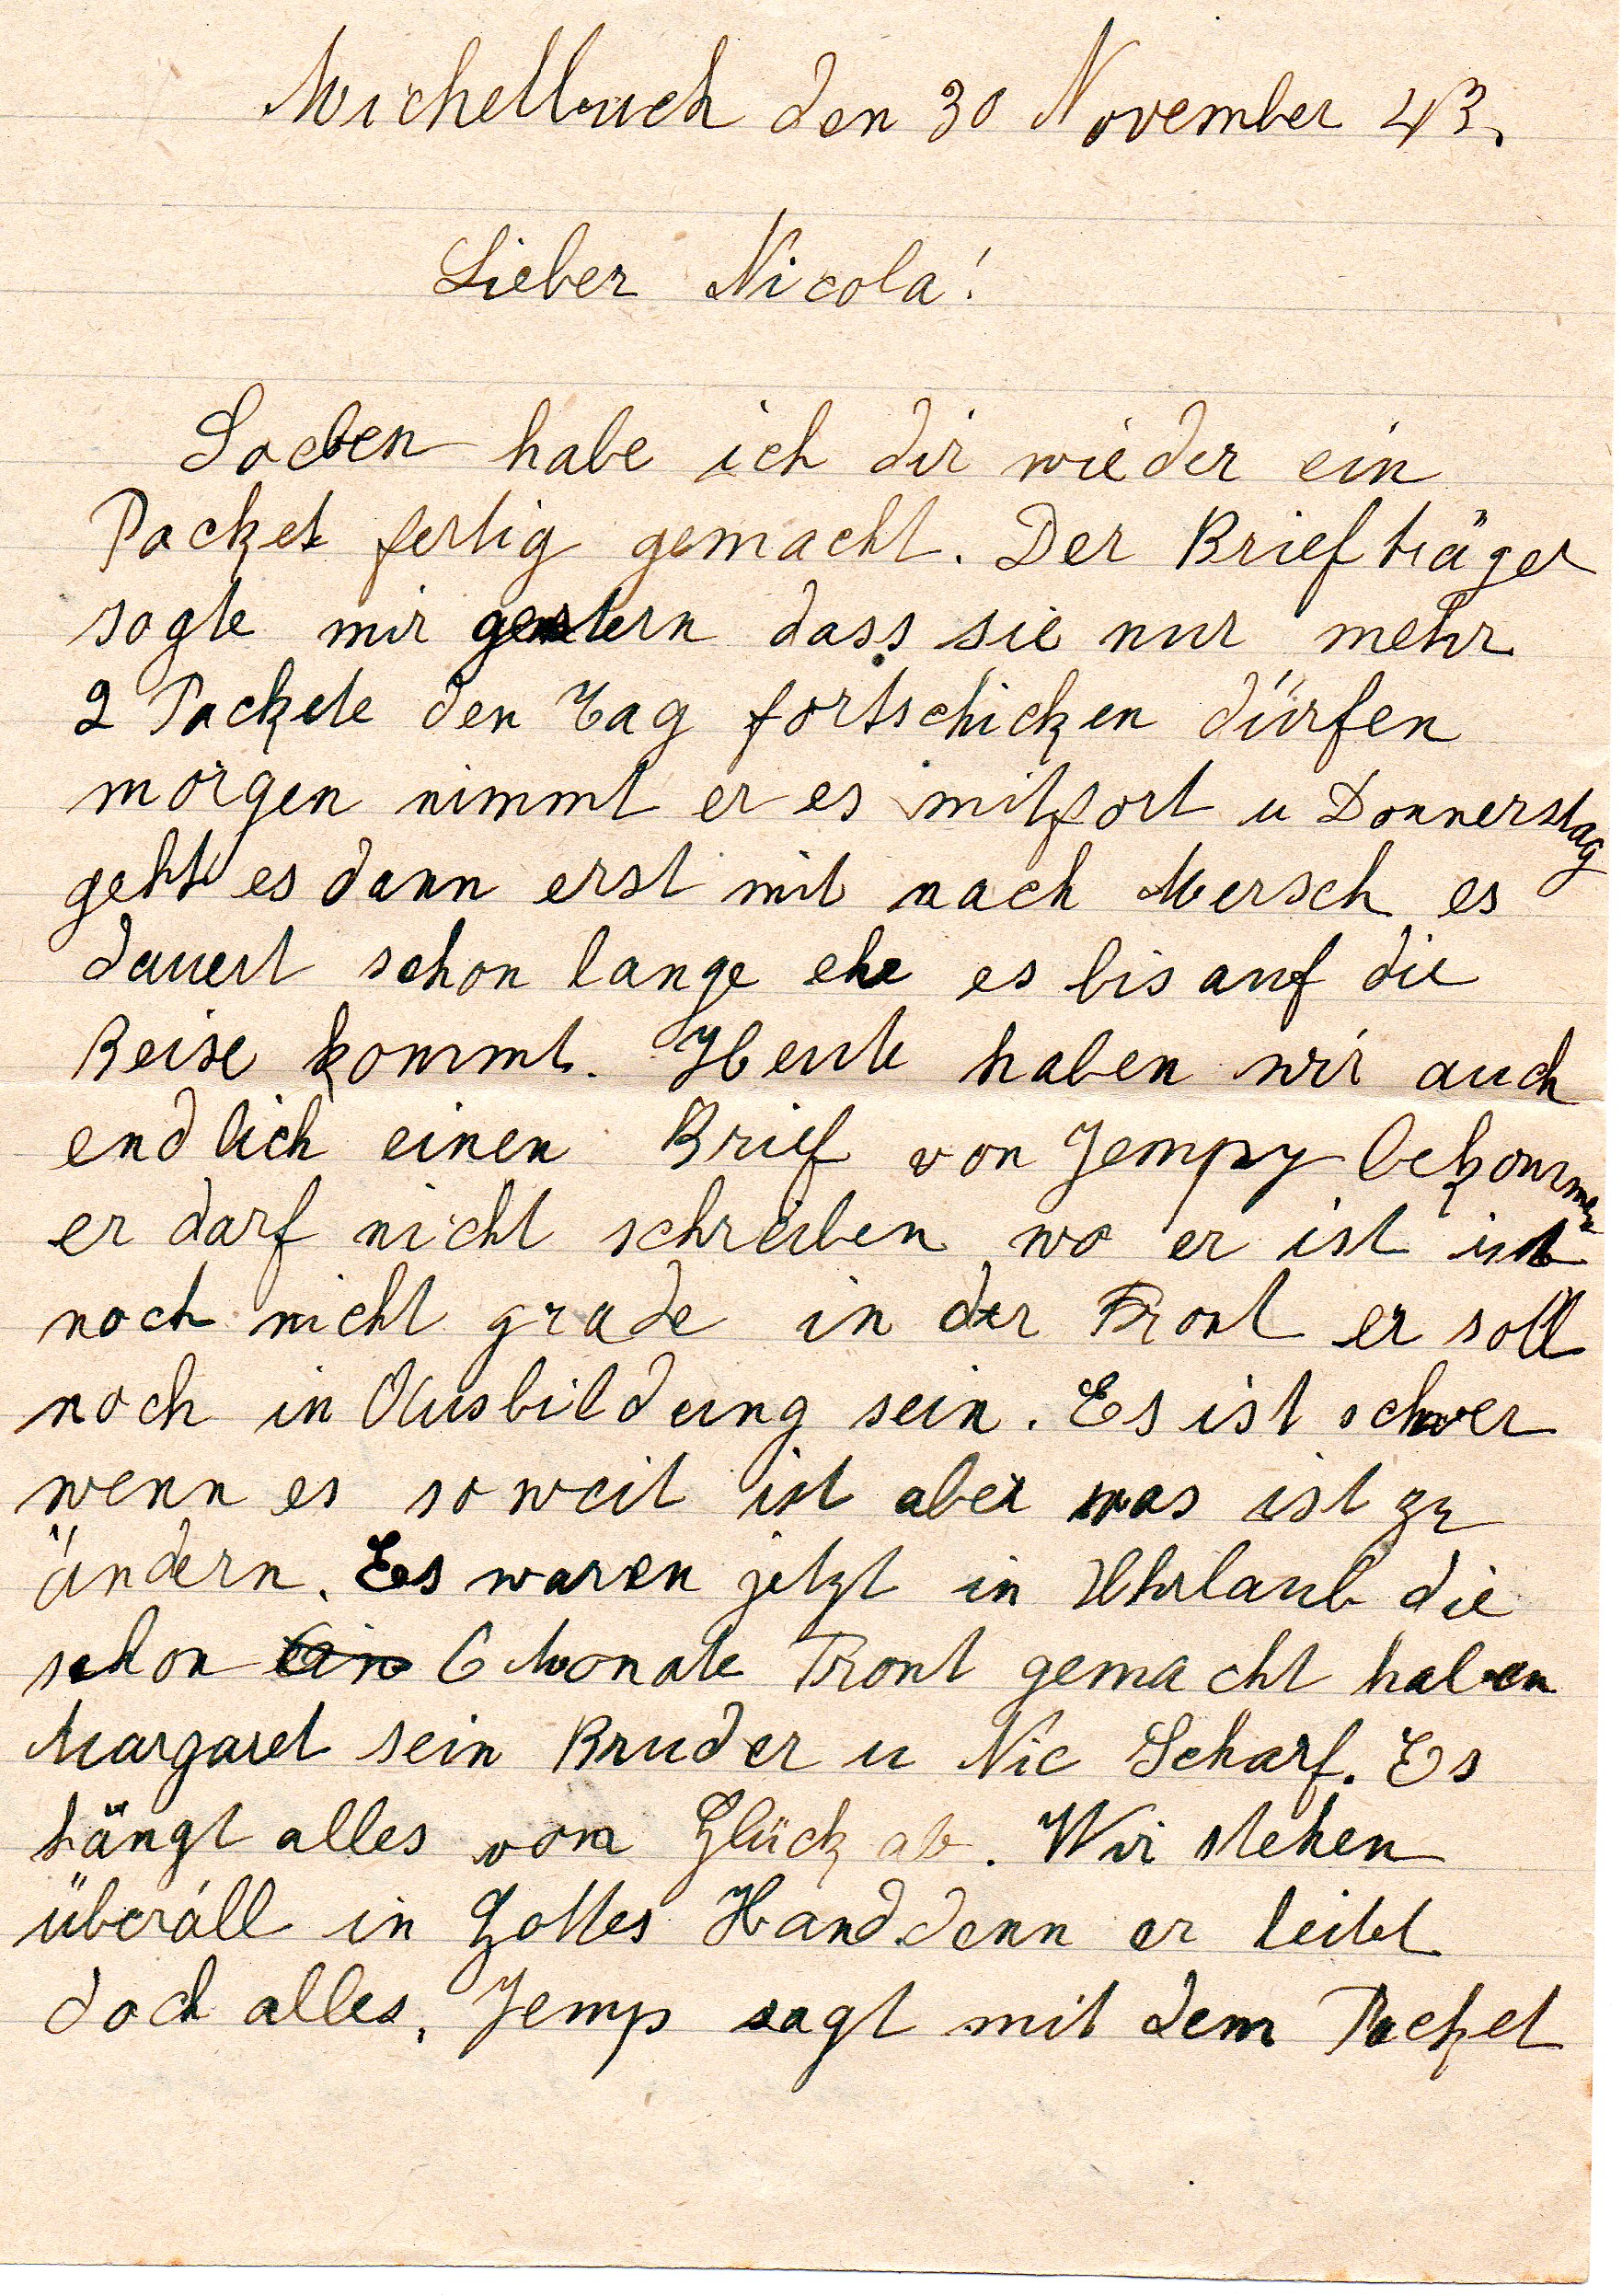 Michelbuch den 30 November 43.
Lieber Nicola!
Soeben habe ich dir wieder ein
Packet fertig gemacht. Der Briefträger
sagte mir gestern dass sie nur mehr
2 Packete den Tag fortschicken dürfen
morgen nimmt er es mitfort u Donnerstag
geht es dann erst mit nach Mersch es
dauert schon lange ehe es bis auf die
Reise kommt. Heute haben wir auch
endlich einen Brief von Jempy bekommen
er darf nicht schreiben wo er ist ist
noch nicht grade in der Front er soll
noch in Ausbildung sein. Es ist schwer
wenn es soweit ist aber was ist zu
ändern. Es waren jetzt in Uhrlaub die
schon ein 6 Monate Front gemacht haben
Margaret sein Bruder u Nic Scharf. Es
hängt alles vom Glück ab. Wir stehen
überall in Gottes Hand denn er leitet
doch alles. Jemp sagt mit dem Packet